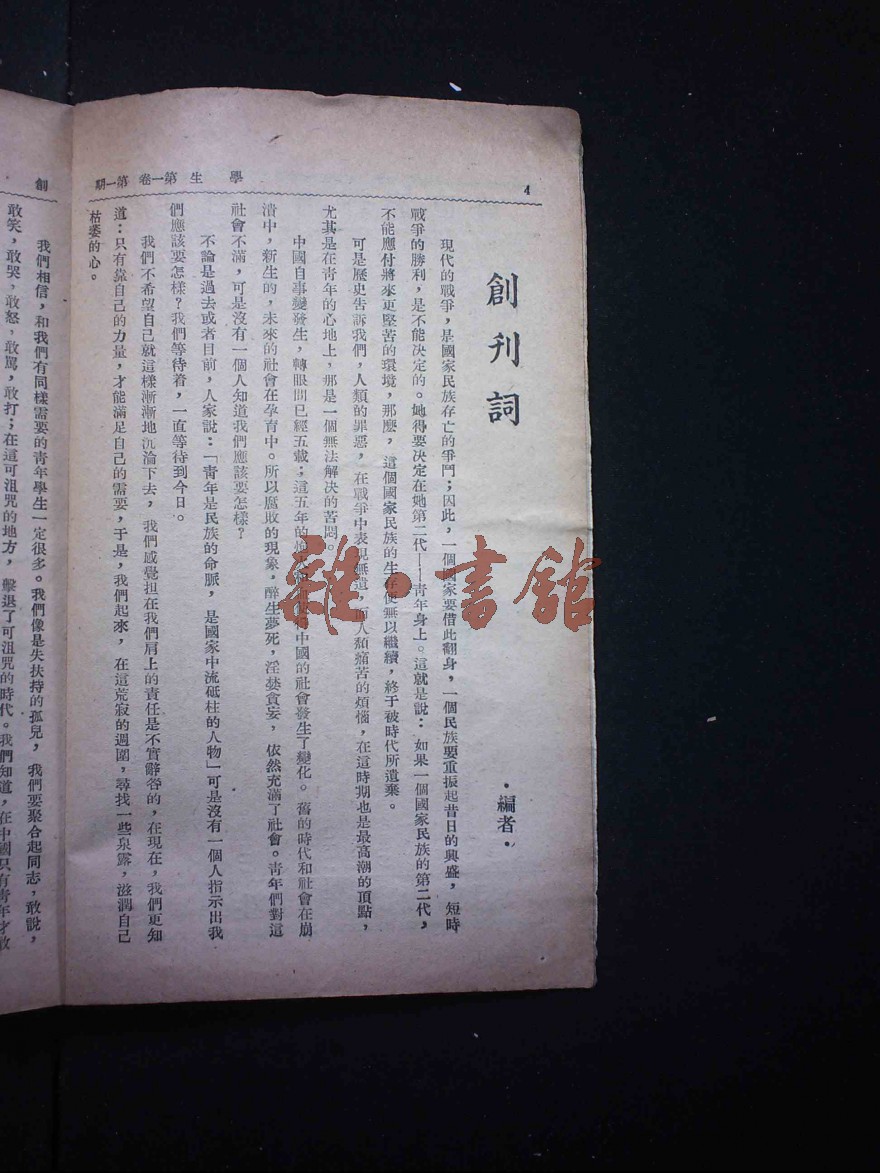 4
學生 第一卷 第一期
創刊詞
·編者·
現代的戰爭，是國家民族存亡的爭鬥；因此，一個國家要借此翻身，一個民族要重振起昔日的興盛，短時
戰爭的勝利，是不能決定的。她得要決定在她第二代——青年身上。這就是說：如果一個國家民族的第二代，
不能應付將來更堅苦的環境，那麼，這個國家民族的生存便無以繼續，終于被時代所遺棄。
可是歷史告訴我們，人類的罪惡，在戰爭中表現無遺，而人類痛苦的煩惱，在這時期也是最高潮的頂點，
尤其是在青年的心地上，那是一個無法解決的苦悶。
中國自事變發生，轉眼間已經五載；這五年的 中國的社會發生了變化。舊的時代和社會在崩
潰中，新生的，未來的社會在孕育中。所以腐敗的現象，醉生夢死，淫婪貪妄，依然充滿了社會。青年們對這
社會不滿，可是沒有一個人知道我們應該要怎樣？
不論是過去或者目前，人家說：「青年是民族的命脈，是國家中流砥柱的人物」可是沒有一個人指示出我
們應該要怎樣？我們等待着，一直等待到今日。
我們不希望自己就這樣漸漸地沉淪下去，我們感覺担在我們肩上的責任是不實辭咎的，在現在，我們更知
道：只有靠自己的力量，才能滿足自己的需要，于是，我們起來，在這荒寂的週圍，尋找一些泉露，滋潤自己
枯萎的心。
創
我們相信，和我們有同樣需要的青年學生一定很多。我們像是失扶持的孤兒，我們要聚合起同志，敢說，
敢笑，敢哭，敢怒，敢罵，敢打；在這可詛咒的地方，擊退了可詛咒的時代。我們知道，在中國只有青年才敢
雜·書館